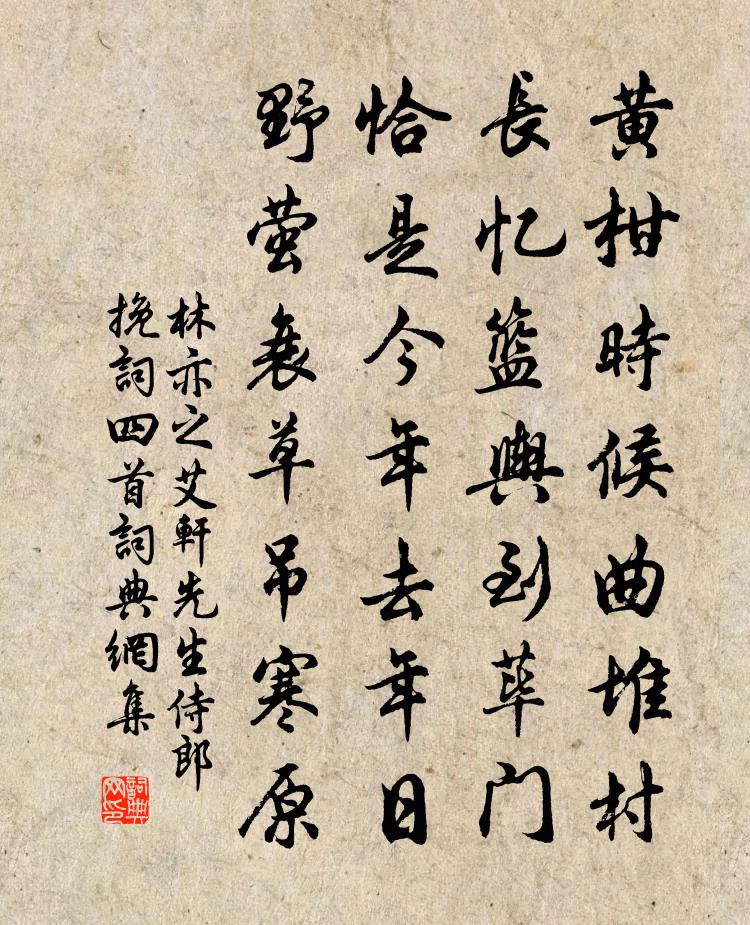 黄柑時候曲堆村
長忆籃輿到荜门
恰是今年去年日
野萤衰草吊寒原
林亦之艾軒先生侍郎
挽詞四首詞典網集
詞典网印